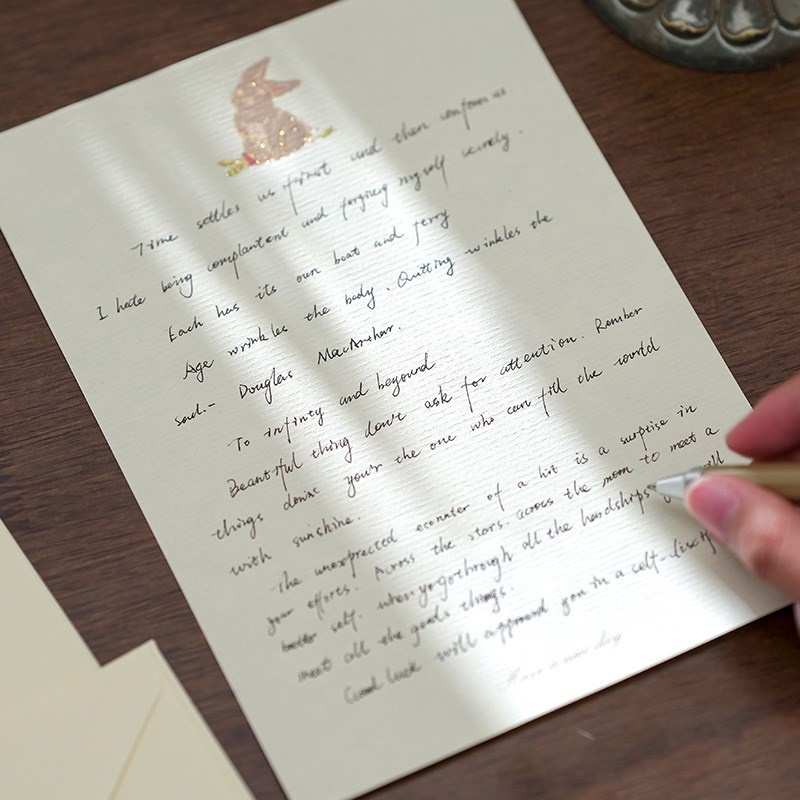 Time settles us first and then conforms us
I hate being complantent and forgiving myself secretly.
Each has its own boat and ferry
Age wrinkles the body. Quitting wrinkles the
soul.- Douglas MacArthar.
To infinty and beyound
Beautiful thing don't ask for attention. Rember
things your the one who can fill the world
with sunshine.
The unexprected econater of a hit is a surprise in
your efforts. Across the stars. across the moon to meet a
better self. when yo go through all the hardships will
meet all the goods things.
Good luck will appread you in a self-discip
Have a nice day